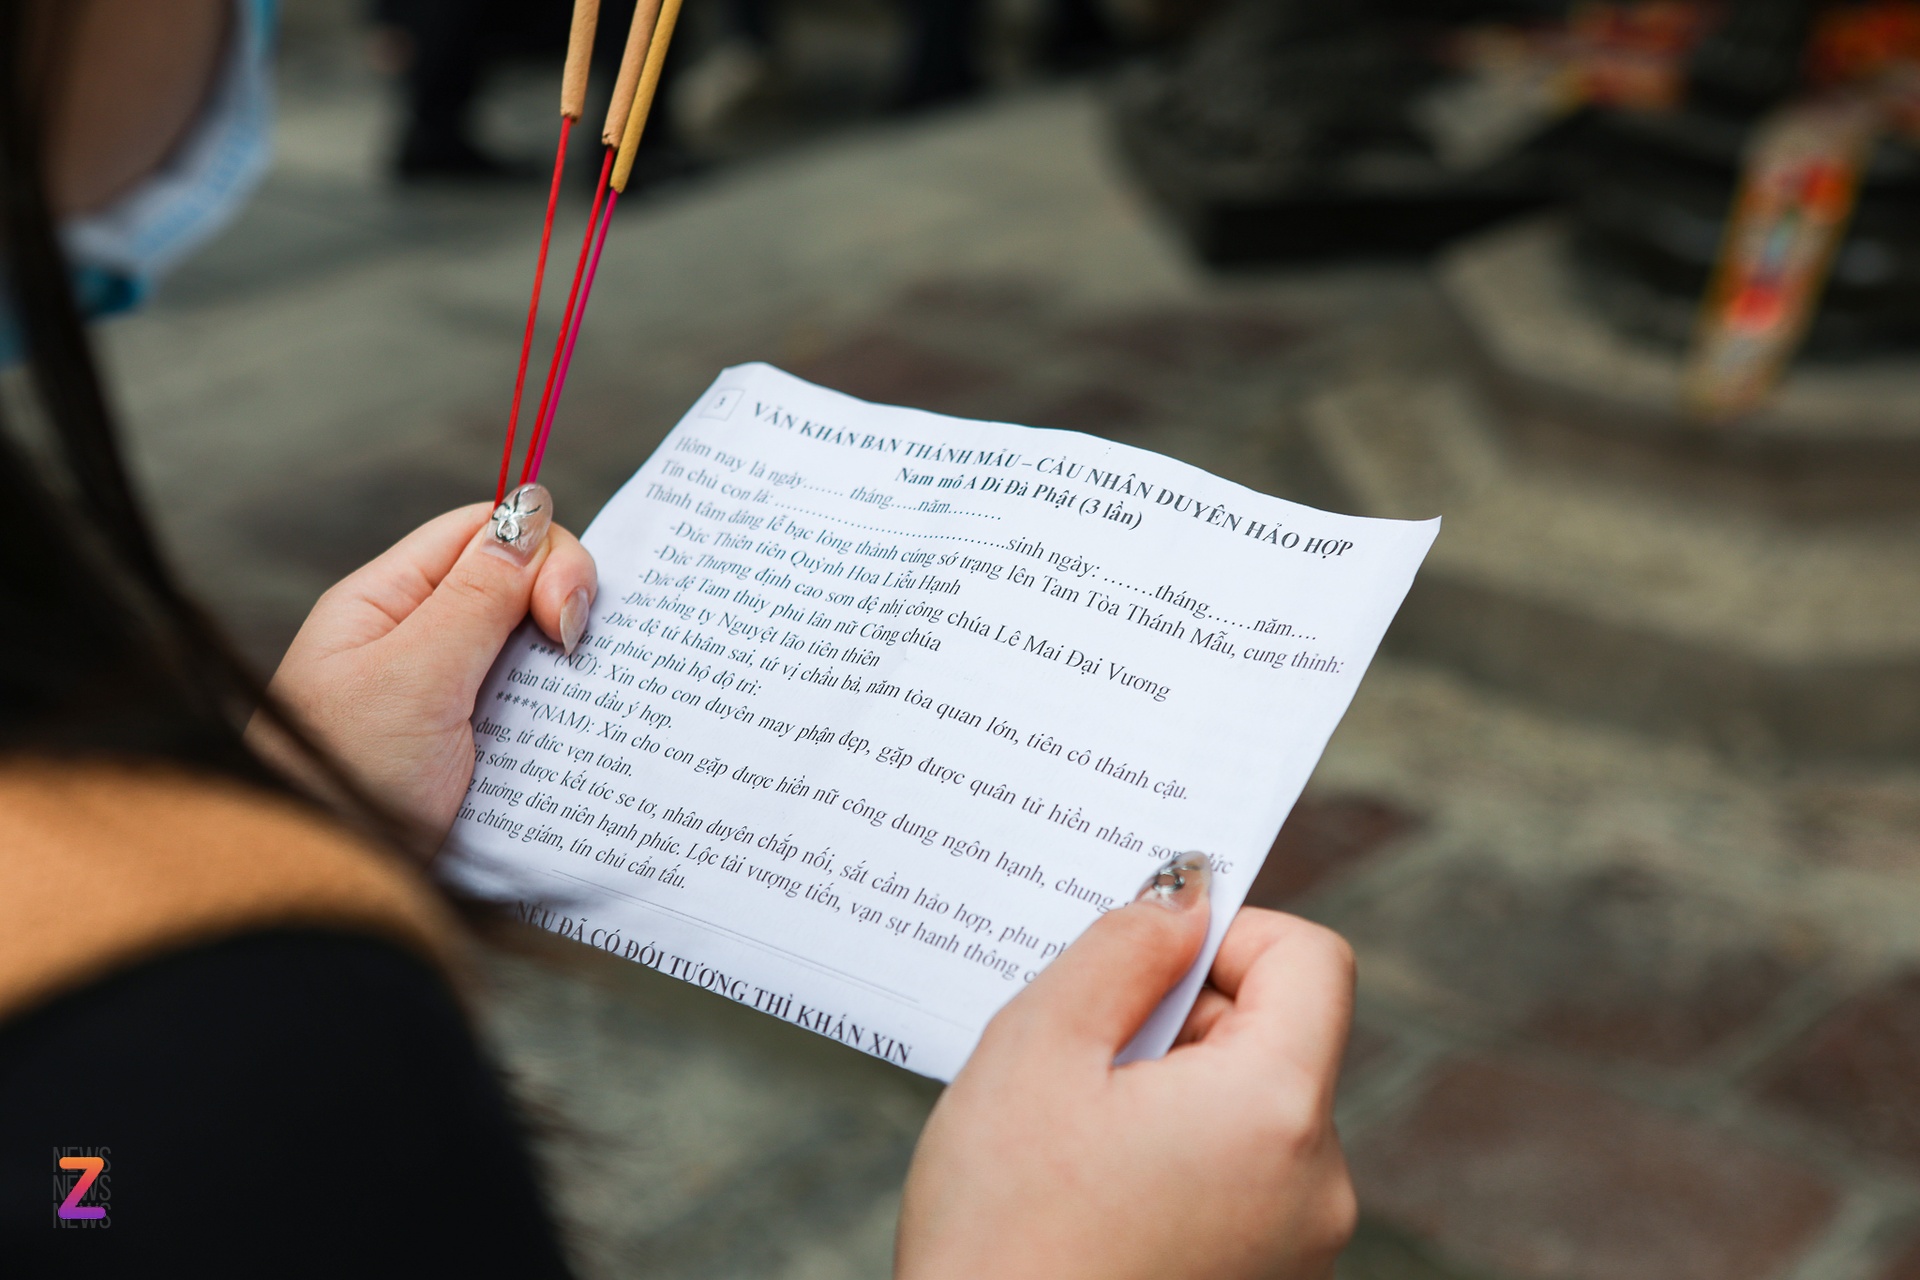 3
VĂN KHẤN BAN THÁNH MẪU – CẦU NHÂN DUYÊN HẢO HỢP
Nam mô A Di Đà Phật (3 lần)
Hôm nay là ngày....... tháng.....năm.........
Tín chủ con là: ........................................sinh ngày: .......tháng.......năm....
Thành tâm dâng lễ bạc lòng thành cúng sớ trạng lên Tam Tòa Thánh Mẫu, cung thỉnh:
-Đức Thiên tiên Quỳnh Hoa Liễu Hạnh
-Đức Thượng định cao sơn đệ nhị công chúa Lê Mai Đại Vương
-Đức đệ Tam thủy phủ lân nữ Công chúa
-Đức hồng ty Nguyệt lão tiên thiên
-Đức đệ tứ khâm sai, tứ vị chầu bà, năm tòa quan lớn, tiên cô thánh cậu.
tứ phúc phù hộ độ trì:
***(NỮ): Xin cho con duyên may phận đẹp, gặp được quân tử hiền nhân
toàn tài tâm đầu ý hợp.
*****(NAM): Xin cho con gặp được hiền nữ công dung ngôn hạnh, chung
dung, tứ đức vẹn toàn.
sớm được kết tóc se tơ, nhân duyên chắp nối, sắt cầm hảo hợp, phu
hưởng diên niên hạnh phúc. Lộc tài vượng tiến, vạn sự hanh thông
chứng giám, tín chủ cẩn tấu.
NẾU ĐÃ CÓ ĐỐI TƯỢNG THÌ KHẤN XIN
NEWS
Z
NEWS
NEWS